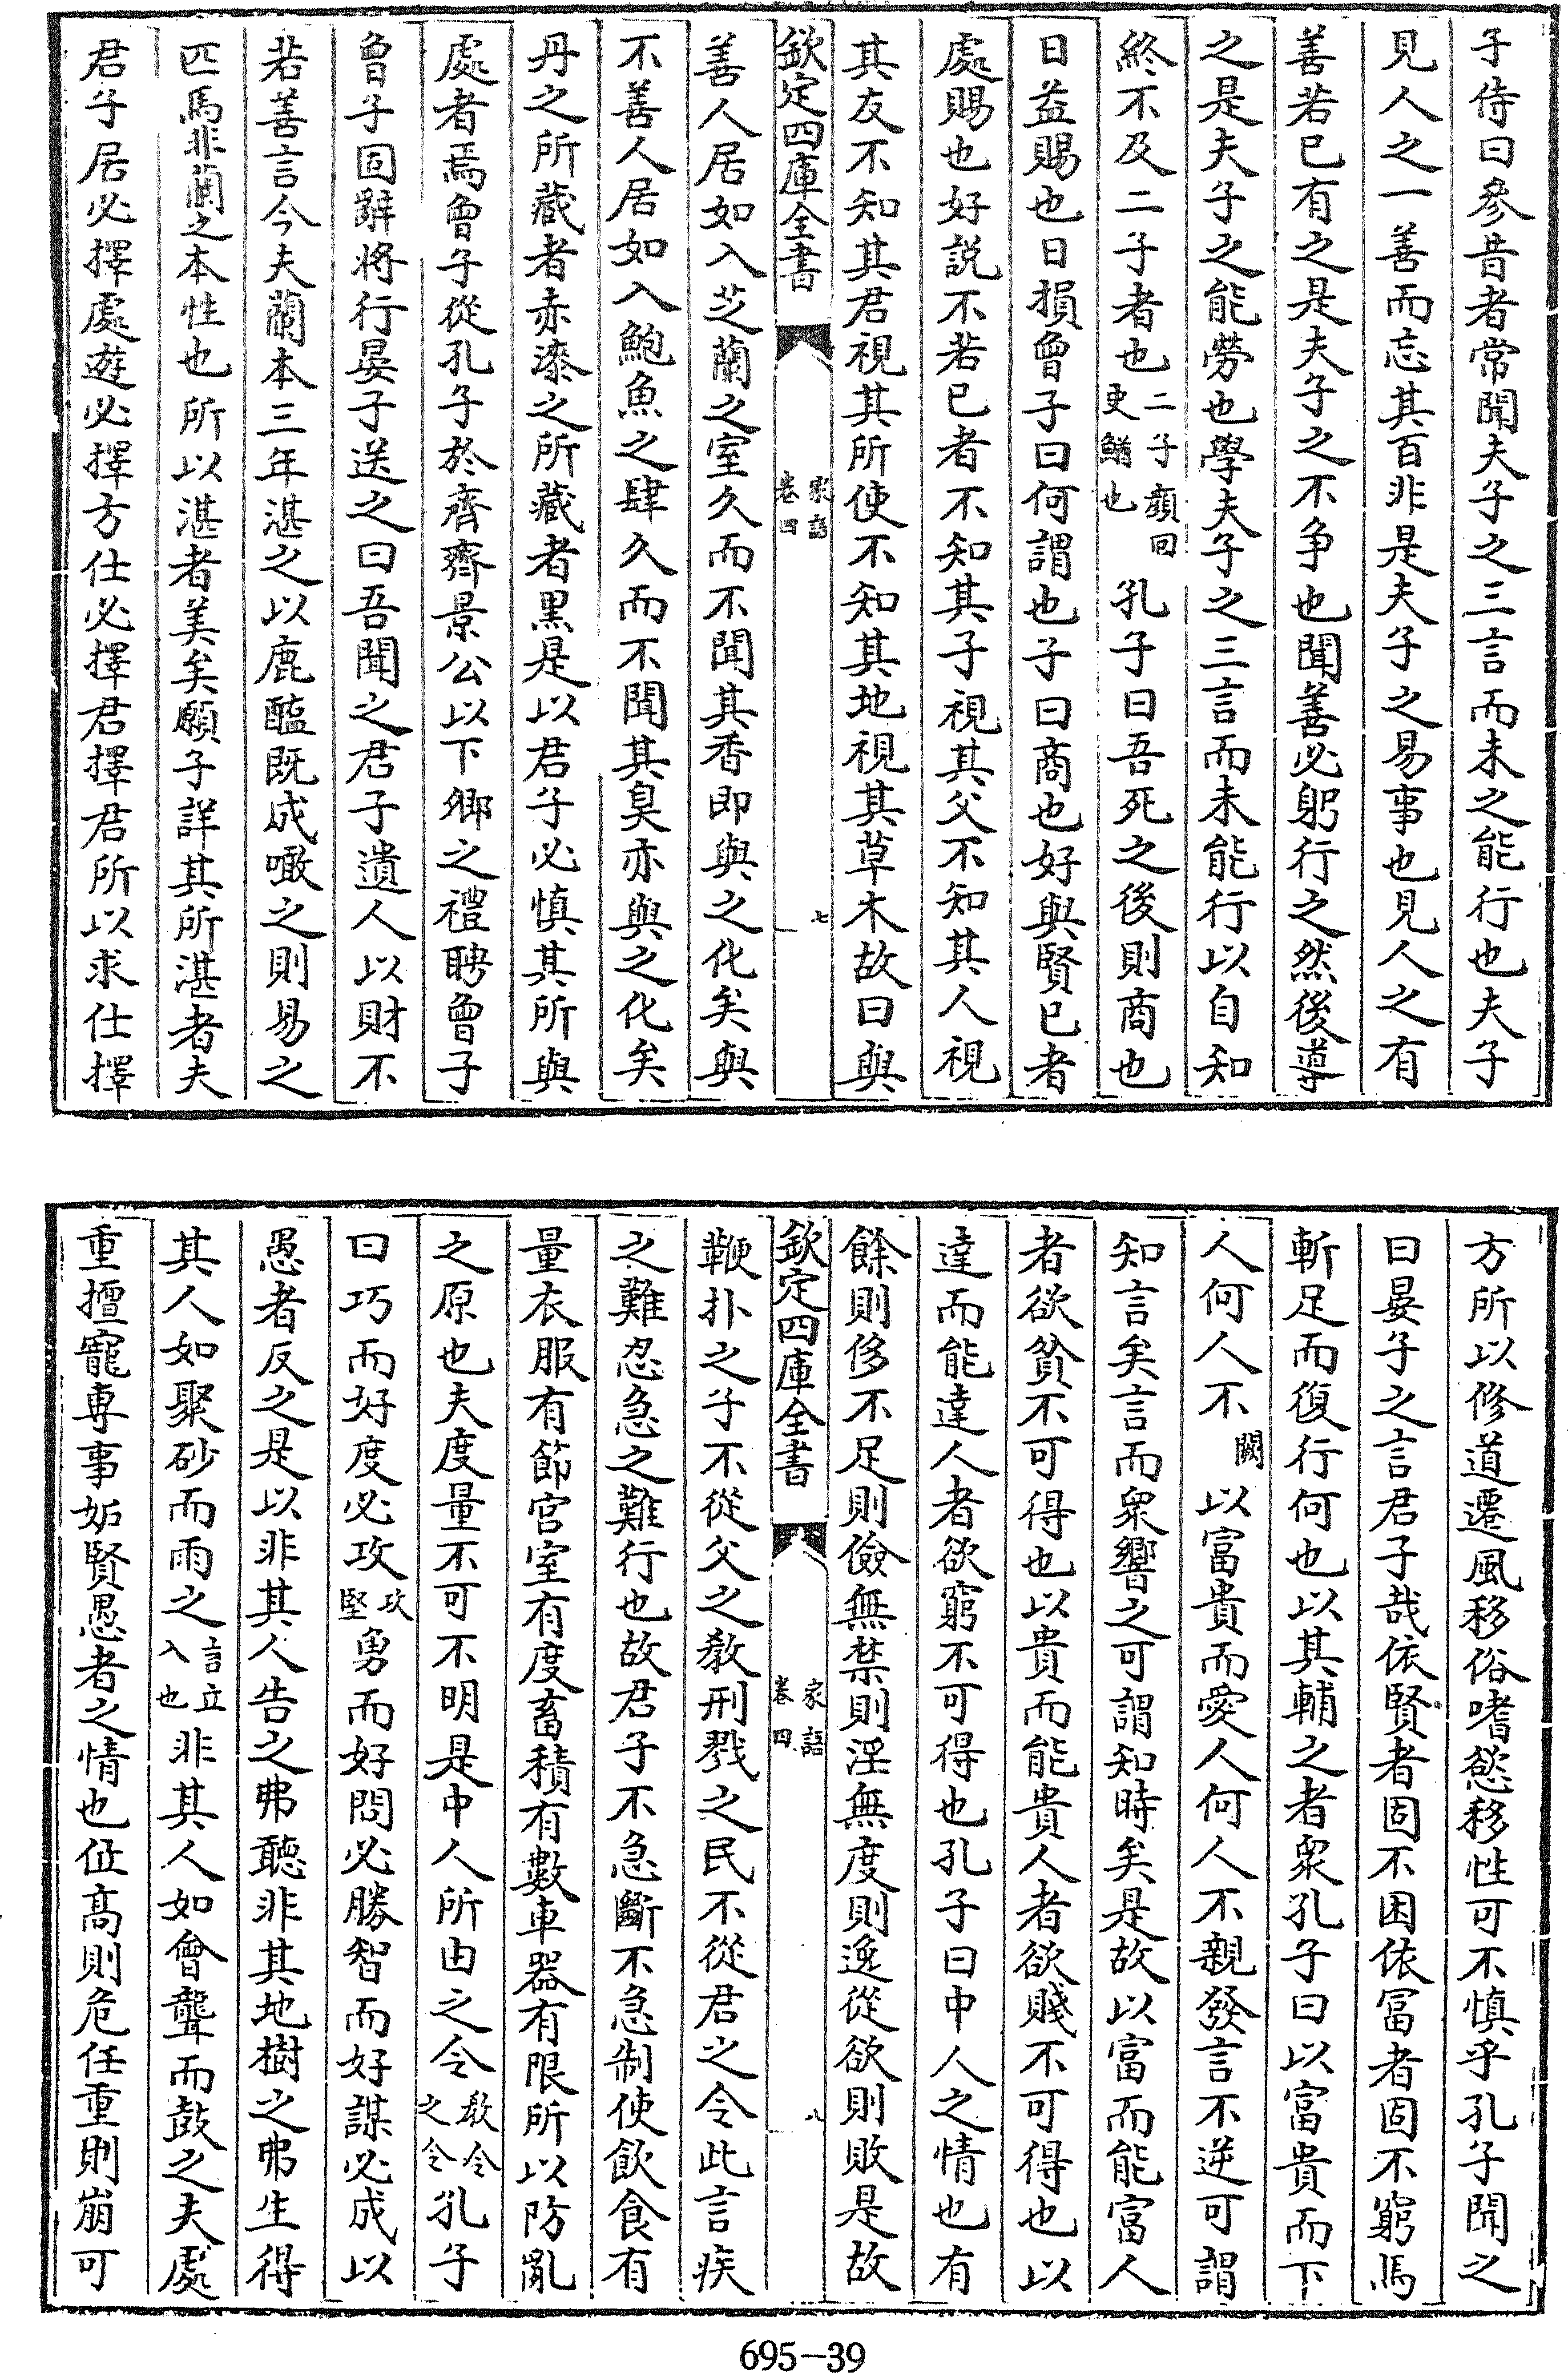 子侍曰參昔者常聞夫子之三言而未之能行也夫子
見人之一善而忘其百非是夫子之易事也見人之有
善若已有之是夫子之不爭也聞善必躬行之然後導
之是夫子之能勞也學夫子之三言而未能行以自知
終不及二子者也二子顔回史鰌也孔子曰吾死之後則商也
日益賜也日損曾子曰何謂也子曰商也好與賢已者
處賜也好說不若已者不知其子視其父不知其人視
其友不知其君視其所使不知其地視其草木故曰與
欽定四庫全書 家語卷四 七
善人居如入芝蘭之室久而不聞其香即與之化矣與
不善人居如入鮑魚之肆久而不聞其臭亦與之化矣
丹之所藏者赤漆之所藏者黑是以君子必慎其所與
處者焉曾子從孔子於齊齊景公以下卿之禮聘曾子
曾子固辭將行晏子送之曰吾聞之君子遺人以財不
若善言今夫蘭本三年湛之以鹿醢既成噉之則易之
匹馬非蘭之本性也所以湛者美矣願子詳其所湛者夫
君子居必擇處遊必擇方仕必擇君擇君所以求仕擇
方所以修道遷風移俗嗜慾移性可不慎乎孔子聞之
曰晏子之言君子哉依賢者固不困依富者固不窮馬
斬足而復行何也以其輔之者衆孔子曰以富貴而下
人何人不闕以富貴而愛人何人不親發言不逆可謂
知言矣言而衆響之可謂知時矣是故以富而能富人
者欲貧不可得也以貴而能貴人者欲賤不可得也以
達而能達人者欲窮不可得也孔子曰中人之情也有
餘則侈不足則儉無禁則淫無度則逸從欲則敗是故
欽定四庫全書 家語卷四 八
鞭扑之子不從父之教刑戮之民不從君之令此言疾
之難忍急之難行也故君子不急斷不急制使飲食有
量衣服有節宮室有度畜積有數車器有限所以防亂
之原也夫度量不可不明是中人所由之令教令之令孔子
曰巧而好度必攻攻堅勇而好問必勝智而好謀必成以
愚者反之是以非其人告之弗聽非其地樹之弗生得
其人如聚砂而雨之言立入也非其人如會聾而鼓之夫處
重擅寵專事妬賢愚者之情也位高則危任重則崩可
695-39